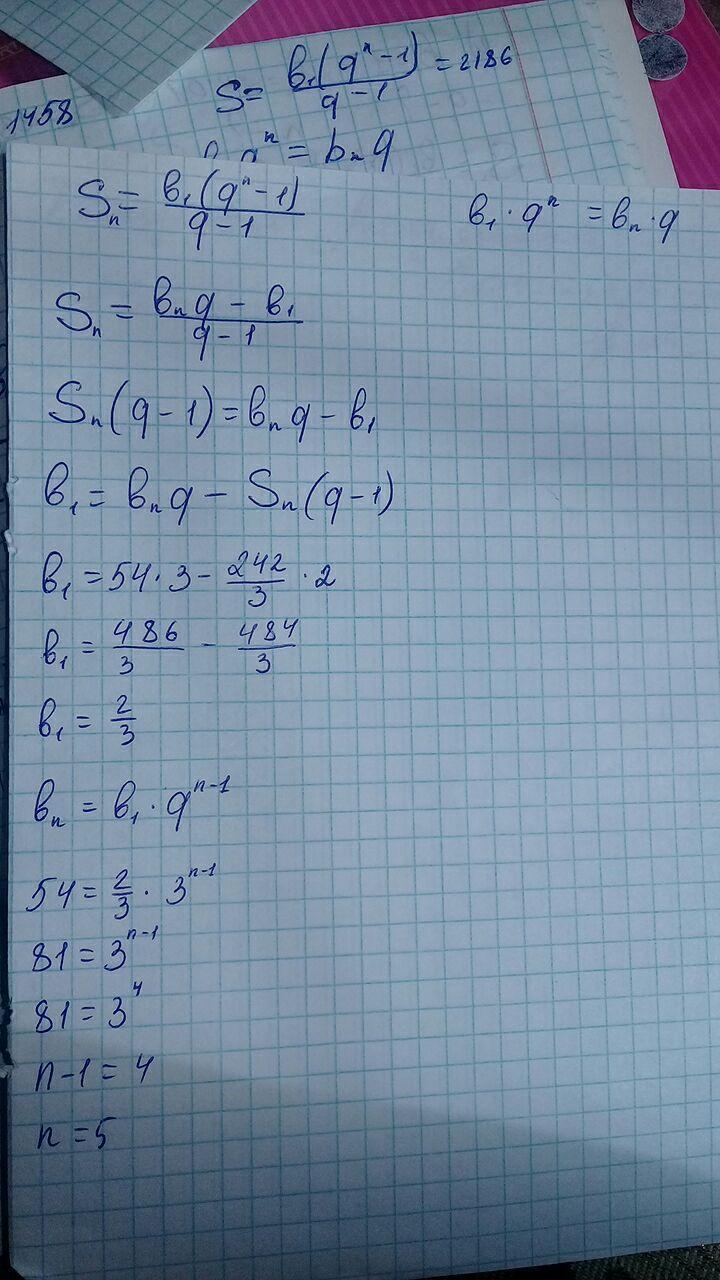 1458
S = b₁(qⁿ - 1) / q - 1 = 2186
qⁿ = bₙ q
Sₙ = b₁(qⁿ - 1) / q - 1
b₁ · qⁿ = bₙ · q
Sₙ = bₙq - b₁ / q - 1
Sₙ(q - 1) = bₙq - b₁
b₁ = bₙq - Sₙ(q - 1)
b₁ = 54 · 3 - 242/3 · 2
b₁ = 486/3 - 484/3
b₁ = 2/3
bₙ = b₁ · qⁿ⁻¹
54 = 2/3 · 3ⁿ⁻¹
81 = 3ⁿ⁻¹
81 = 3⁴
n - 1 = 4
n = 5